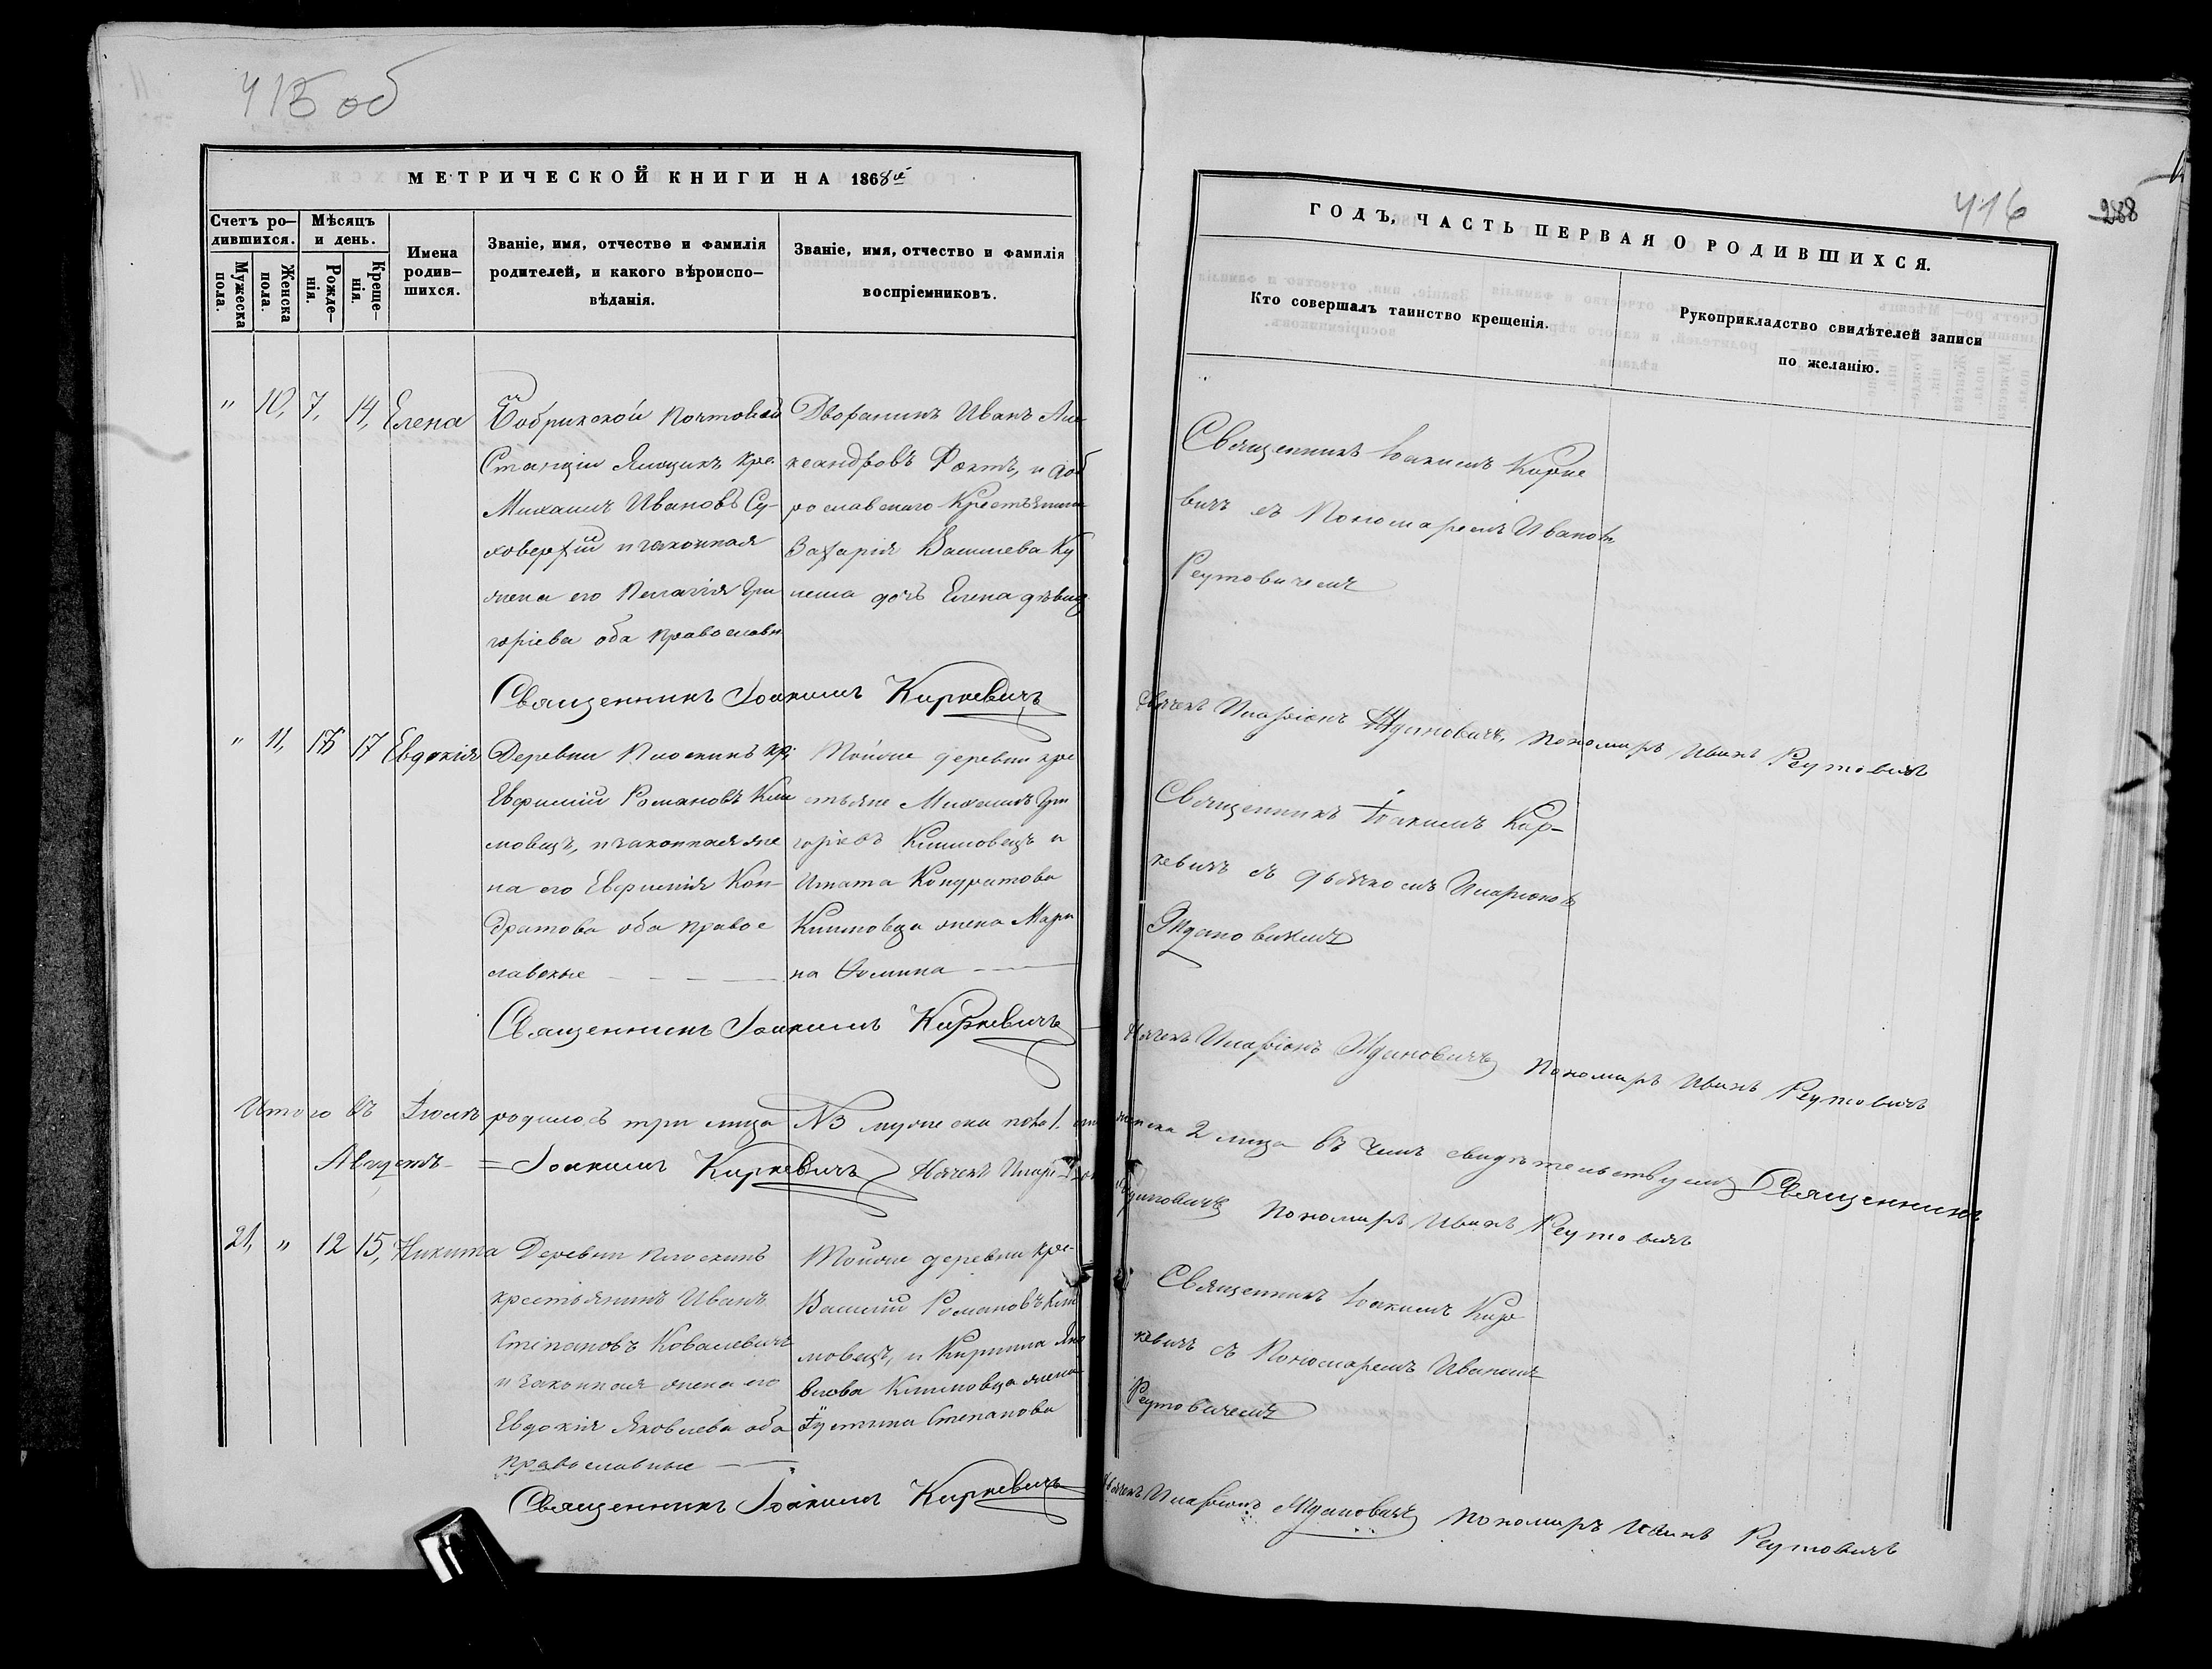 415 об
МЕТРИЧЕСКОЙ КНИГИ НА 1868й
Счетъ ро-
дившихся.
Мѣсяцъ
и день.
Мужеска
пола.
Женска
пола.
Рожде-
нія.
Креще-
нія.
Имена
родив-
шихся.
Званіе, имя, отчество и фамилія
родителей, и какого вѣроиспо-
вѣданія.
Званіе, имя, отчество и фамилія
воспріемниковъ.
" 10, 7, 14, Елена
Бобрикской Почтовой
Станціи Ямщикъ кре.
Михаилъ Ивановъ Су-
и законная
жена его Пелагія Гри
горіева оба православн
Дворянинъ Иванъ Але
ксандровъ и доб
рославскаго Крестьянина
Захарія Василева Ку
леша дочь Елена дѣвиц
Священникъ Іоакимъ Киркевичъ
" 11, 15 17 Евдокія
Деревни Плоскинъ кр:
Евфимій Романовъ Кли
мовецъ, и законная же
на его Евфимія Кон-
дратова оба правос
лавные
Тойже деревни кре
стьяне Михаилъ Гри
горіевъ Климовецъ и
Игната Кондратова
Климовца жена Мари
на Фомина
Священникъ Іоакимъ Киркевичъ
Итого въ Іюлѣ родилось три лица №3 мужеска пола 1.
Августъ = Іоакимъ Киркевичъ Дьячекъ Иларі
21, " 12 15, Никита
Деревни Плоскинъ
крестьянинъ Иванъ
Степановъ Ковалевичъ
и законная жена его
Евдокія Яковлева оба
православные
Тойже деревни кре-
Василій Романовъ Кли
мовецъ, и Кирила Яко
влова Климовца жена
Іустина Степанова
Священникъ Іоакимъ Киркевичъ
416
288
ГОДЪ, ЧАСТЬ ПЕРВАЯ О РОДИВШИХСЯ.
Кто совершалъ таинство крещенія.
Рукоприкладство свидѣтелей записи
по желанію.
Священникъ Іоакимъ Кирке
вичъ съ Пономаремъ Иваномъ
Реутовичемъ
Дьячекъ Иларіонъ Ждановичъ, Пономарь Иванъ Реутовичъ
Священникъ Іоакимъ Кир-
кевичъ съ дьячкомъ Иларіономъ
Ждановичемъ
Дьячекъ Иларіонъ Ждановичъ Пономарь Иванъ Реутовичъ
женска 2 лица въ чемъ свидѣтельствуемъ Священникъ
Ждановичъ Пономарь Иванъ Реутовичъ
Священникъ Іоакимъ Кир
кевичъ съ Пономаремъ Иваномъ
Реутовичемъ
Дьячекъ Иларіонъ Ждановичъ Пономарь Иванъ Реутовичъ